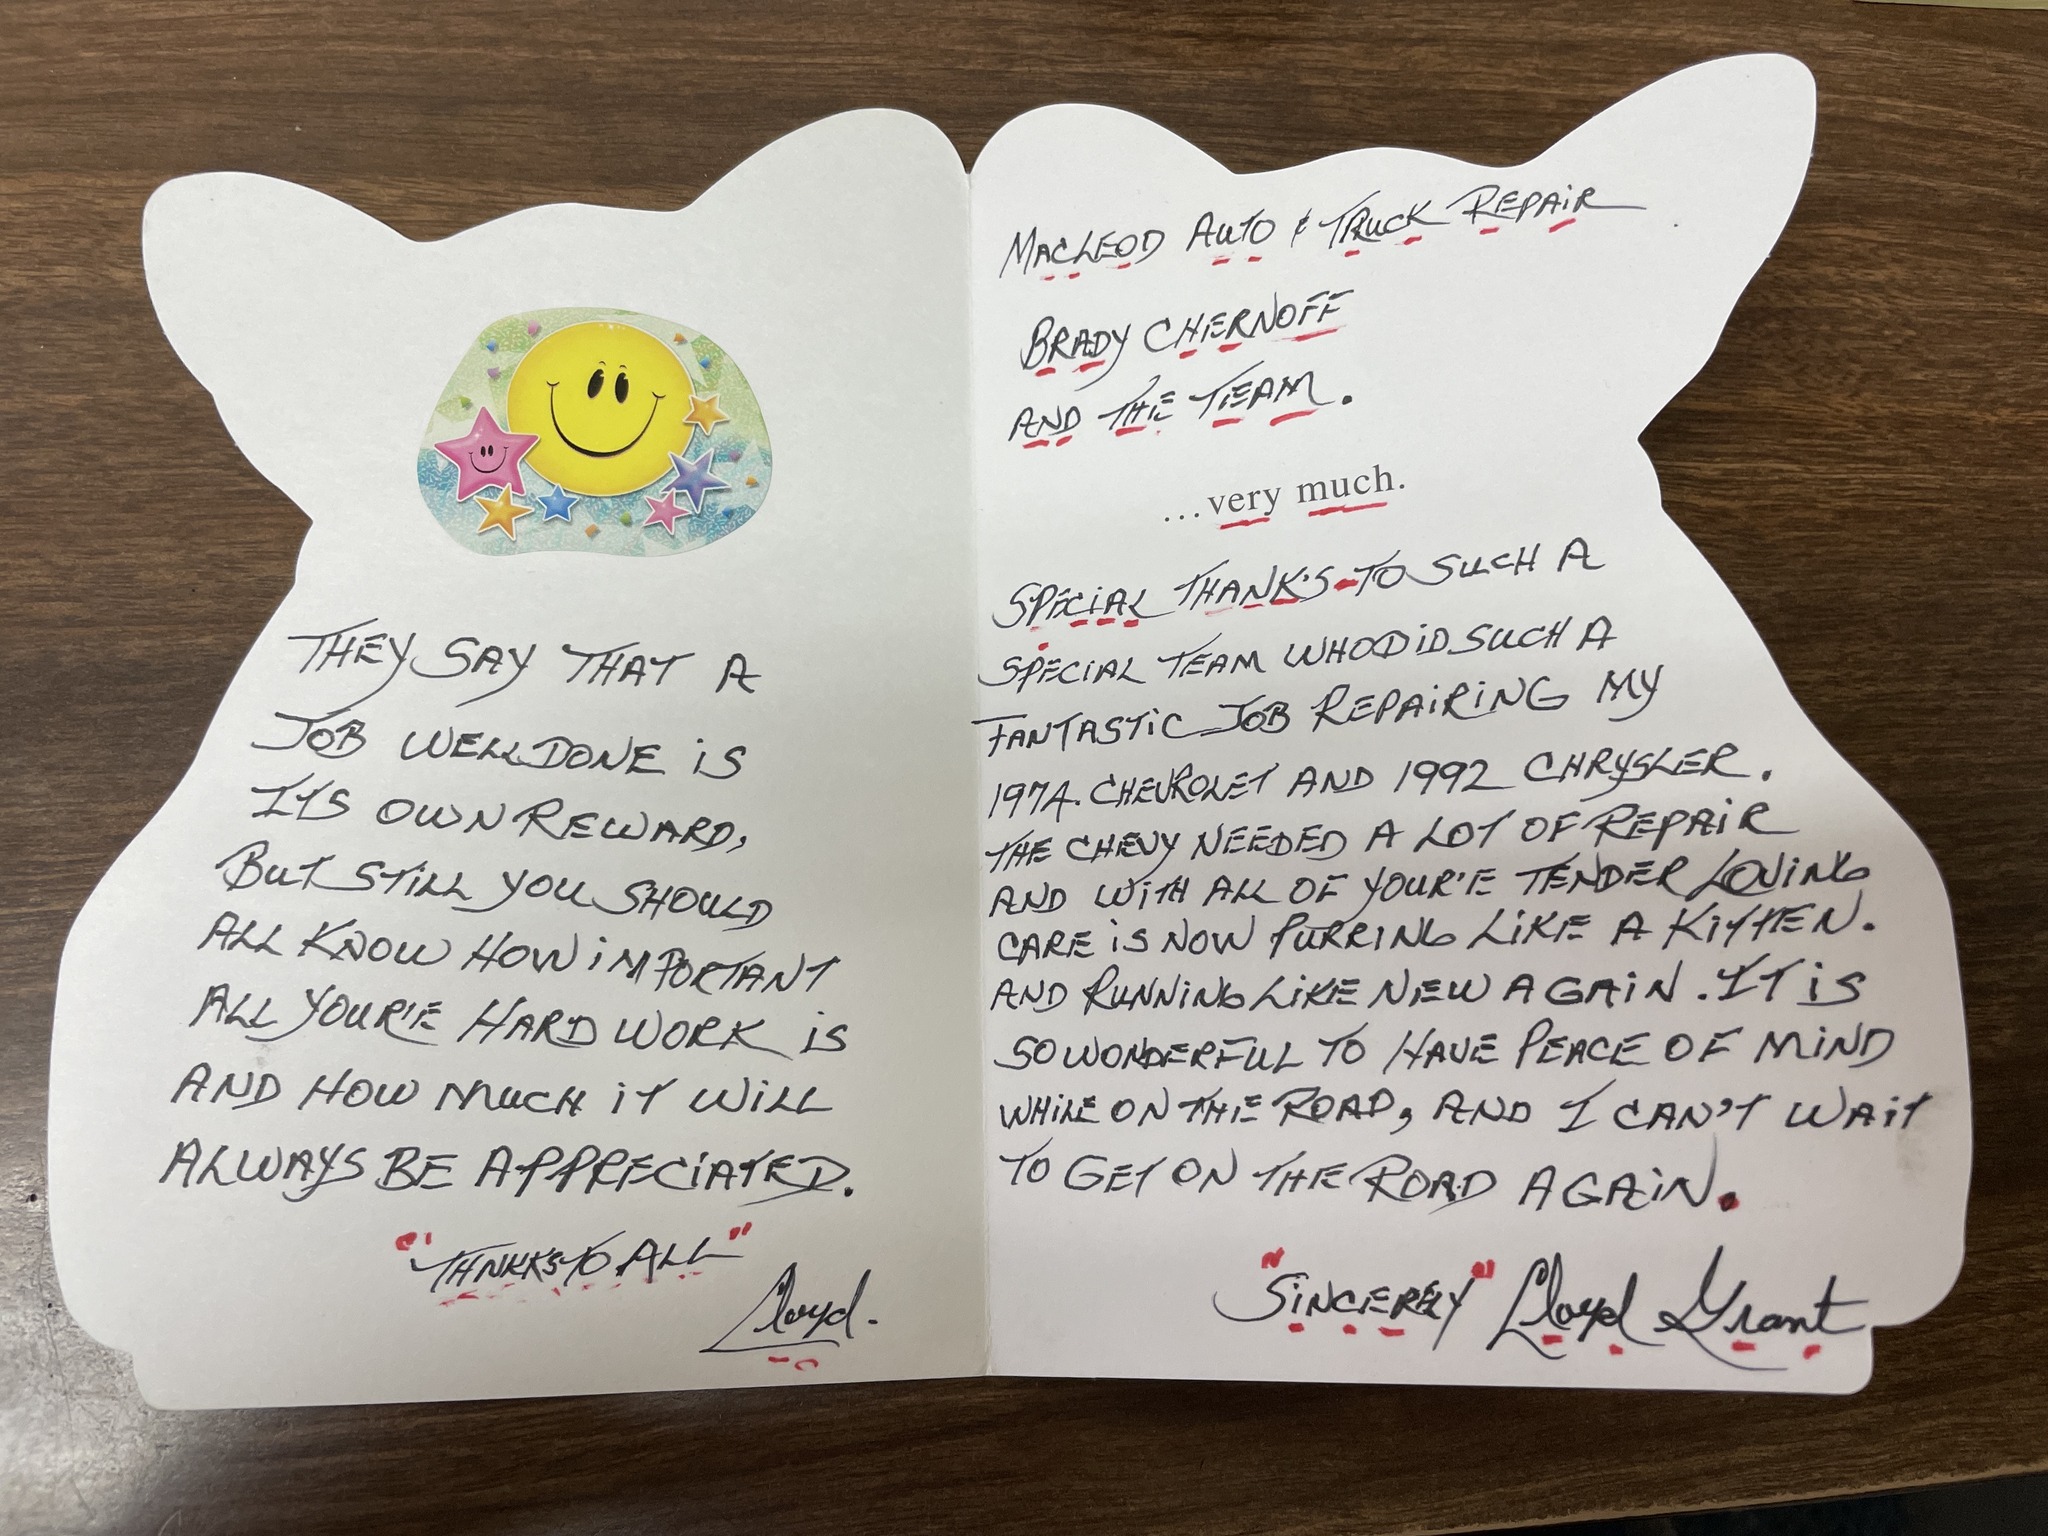 THEY SAY THAT A
JOB WELL DONE IS
ITS OWN REWARD,
BUT STILL YOU SHOULD
ALL KNOW HOW IMPORTANT
ALL YOUR'E HARD WORK IS
AND HOW MUCH IT WILL
ALWAYS BE APPRECIATED.
"THNKK'S TO ALL"
Lloyd.
MACLEOD AUTO & TRUCK REPAIR
BRADY CHERNOFF
AND THE TEAM.
...very much.
SPECIAL THANK'S-TO SUCH A
SPECIAL TEAM WHO DID SUCH A
FANTASTIC JOB REPAIRING MY
1974. CHEVROLET AND 1992 CHRYSLER.
THE CHEVY NEEDED A LOT OF REPAIR
AND WITH ALL OF YOUR'E TENDER LOVING
CARE IS NOW PURRING LIKE A KITTEN.
AND RUNNING LIKE NEW AGAIN. IT IS
SO WONDERFUL TO HAVE PEACE OF MIND
WHILE ON THE ROAD, AND I CAN'T WAIT
TO GET ON THE ROAD AGAIN.
"SINCERELY" Lloyd Grant